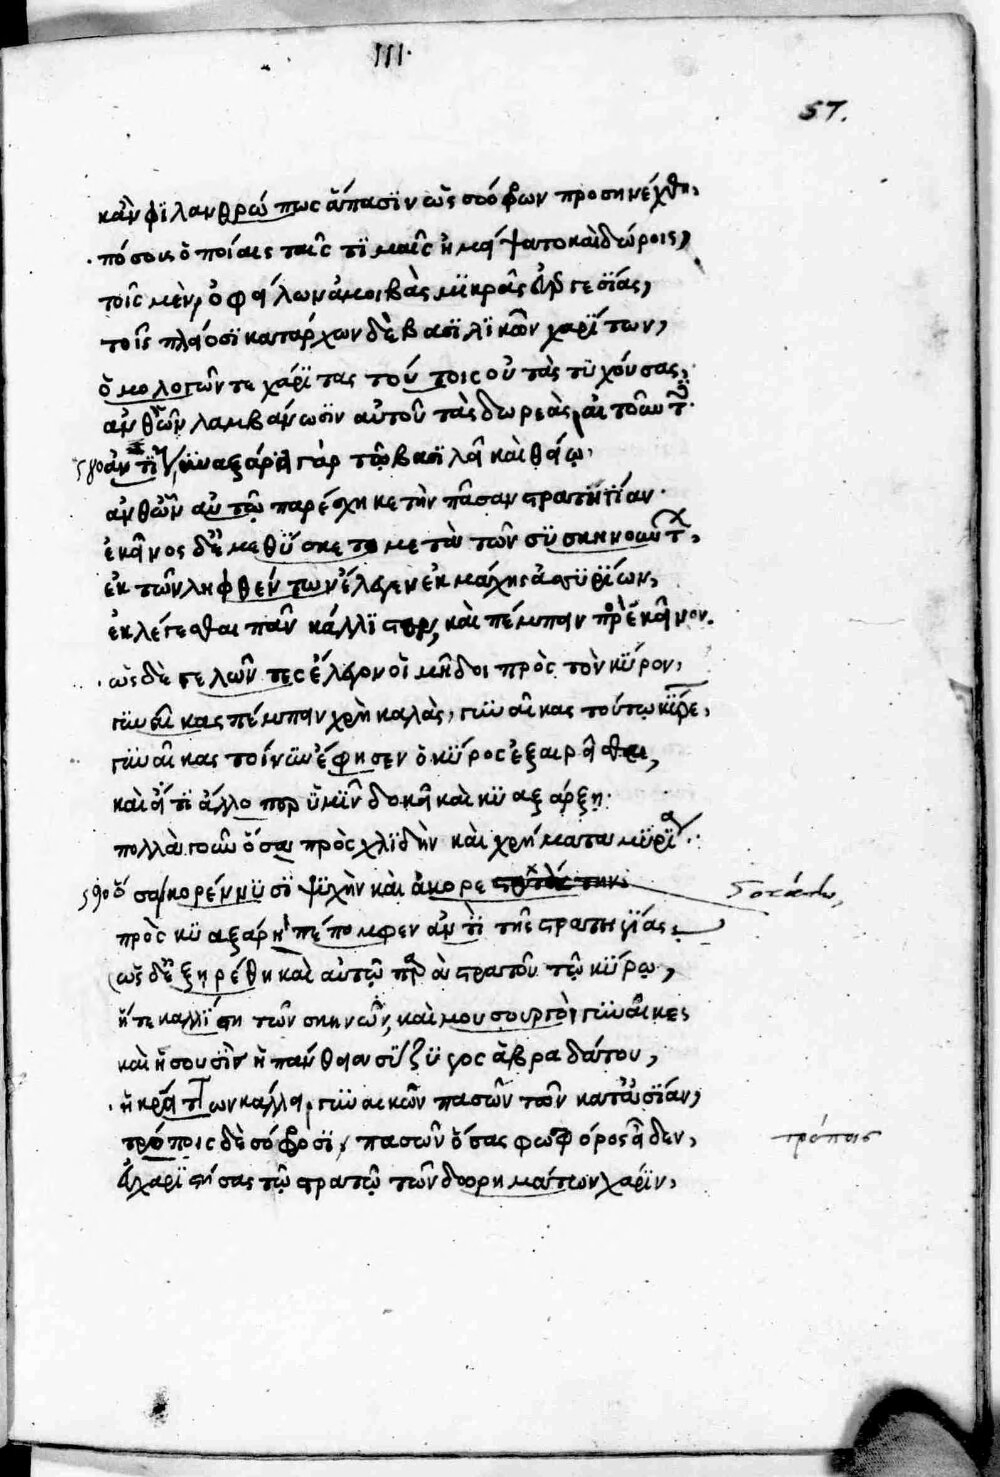 III.
57.
κἂν φϊλανθρώπως ἅπασϊν ὡς σόφων προσηνέχθη,
πόσοις ὁποίαις ταῖς τϊμαῖς ἠμείψατο καὶ δώροις,
τοῖς μὲν, ὀφείλων ἀμοιβὰς μϊκρᾶς εὐεργεσϊας,
τοῖς πλείοσϊ κατάρχων δὲ βασϊλϊκῶν χαρϊτων,
ὁμολογῶν τε χάρϊτας τούτοις οὐ τὰς τϋχούσας,
ἀνθ' ὧν λαμβάνωσϊν αὐτοῦ τὰς δωρεὰς
580 κϋαξάρει γὰρ τῷ βασϊλεῖ καὶ θείῳ,
ἀνθ' ὧν αὐτῷ παρέσχηκε τὴν πᾶσαν στρατηγϊαν.
ἐκεῖνος δὲ μεθϋσκετο μετὰ τῶν σϋσκηνούντων,
ἐκ τῶν ληφθέντων ἔλεγεν ἐκ μάχης ἀσσϋρϊων,
ἐκλέγεσθαι πᾶν κάλλϊστον, καὶ πέμπειν πρὸς ἐκεῖνον.
ὡς δὲ γελῶντες ἔλεγον οἱ μῆδοι πρὸς τὸν κῦρον,
γϋναῖκας πέμπειν χρὴ καλὰς, γϋναῖκας τούτῳ κῦρε,
γϋναῖκας τοίνϋν ἔφησεν ὁ κῦρος ἐξαιρεῖσθαι,
καὶ εἴ τϊ ἄλλο περ ὑμῖν δοκεῖ καὶ κϋαξάρξῃ.
πολλὰ γοῦν ὅσα πρὸς χλϊδὴν καὶ χρήματα μϋρϊα.
590 ὅσα κορέννϋσϊ ψϋχὴν καὶ ἀκορε
πρὸς κϋαξάρη πέπομφεν ἀντὶ τῆς στρατηγϊας.
ὡς δὲ ἐξηρέθη καὶ αὐτῷ παρὰ στρατοῦ τῷ κύρῳ,
ἥ τε καλλϊστη τῶν σκηνῶν, καὶ μουσουργοὶ γϋναῖκες
καὶ ἡ σουσὶς ἡ πάνθεια σϋζϋγος ἀβραδάτου,
ἡ κρείττων κάλλει γϋναικῶν πασῶν τῶν κατ' ἀσϊαν,
τρόποις δὲ σόφροσϊ, πασῶν ὅσας φωσφόρος εἶδεν,
εὐχαρϊστήσας τῷ στρατῷ τῶν δωρημάτων χάρϊν,
τρόποις